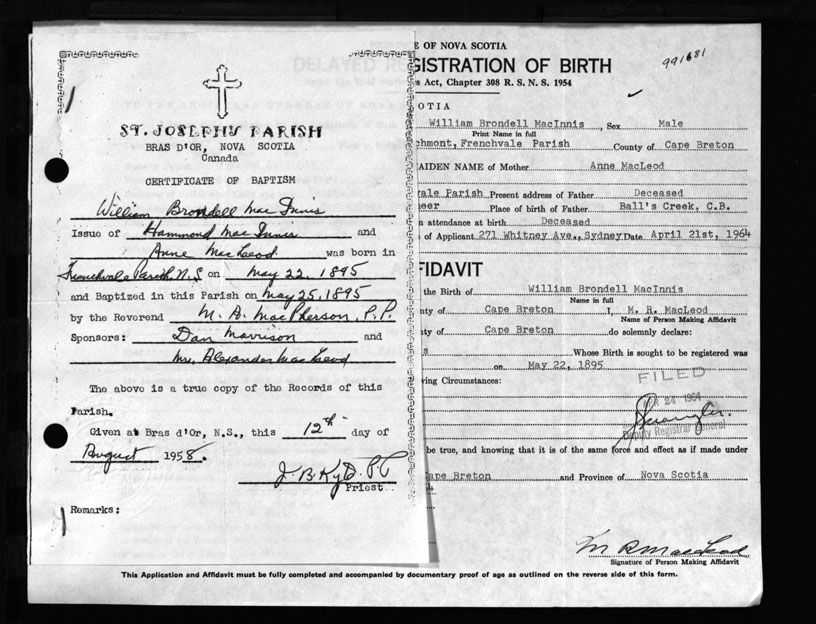 ST. JOSEPH'S PARISH
BRAS D'OR, NOVA SCOTIA
Canada
CERTIFICATE OF BAPTISM
William Brondell Mac Innis
Issue of Hammond Mac Innis and
Anne MacLeod. was born in
Frenchvale Parish N.S on May 22, 1895
and Baptized in this Parish on May 25, 1895
by the Reverend M. A. MacPherson, P.P.
Sponsors: Dan Morrison and
Mrs. Alexander MacLeod
The above is a true copy of the Records of this
Parish.
Given at Bras d'Or, N.S., this 12th day of
August 1958.
J. B. Kyte P.P.
Priest.
Remarks:
E OF NOVA SCOTIA
GISTRATION OF BIRTH
991681
s Act, Chapter 308 R. S. N. S. 1954
COTIA
William Brondell MacInnis, Sex Male
Print Name in full
chmont, Frenchvale Parish County of Cape Breton
MAIDEN NAME of Mother Anne MacLeod
vale Parish Present address of Father Deceased
neer Place of birth of Father Ball's Creek, C.B.
n attendance at birth Deceased
of Applicant 271 Whitney Ave., Sydney Date April 21st, 1964
FIDAVIT
the Birth of William Brondell MacInnis
Name in full
nty of Cape Breton I, M. R. MacLeod
Name of Person Making Affidavit
ty of Cape Breton do solemnly declare:
s Whose Birth is sought to be registered was
on May 22, 1895
wing Circumstances:
FILED
24 1964
Deputy Registrar General
be true, and knowing that it is of the same force and effect as if made under
Cape Breton and Province of Nova Scotia
M R MacLeod
Signature of Person Making Affidavit
This Application and Affidavit must be fully completed and accompanied by documentary proof of age as outlined on the reverse side of this form.